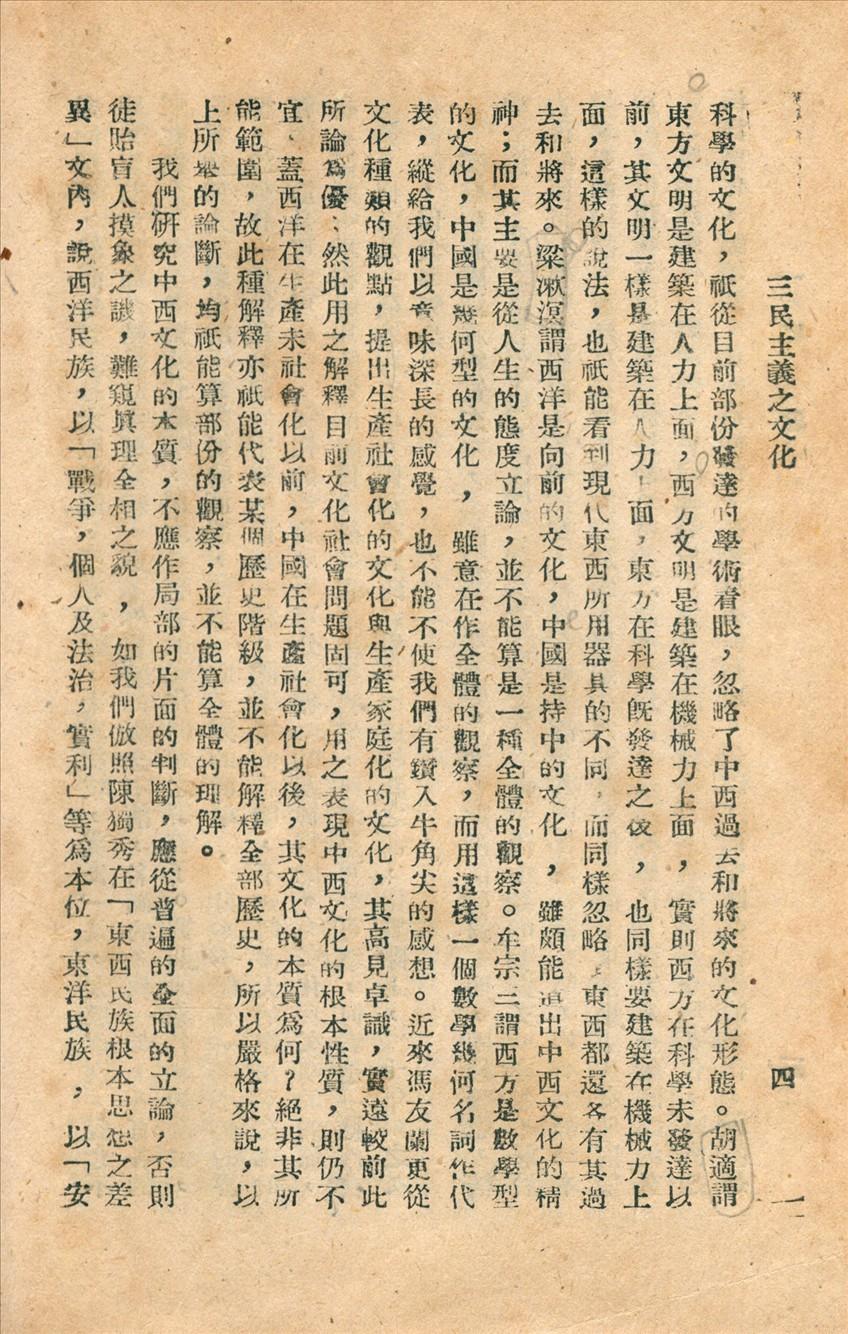 三民主義之文化　四二
科學的文化，祇從目前部份發達的學術着眼，忽略了中西過去和將來的文化形態。胡適謂
東方文明是建築在人力上面，西方文明是建築在機械力上面，實則西方在科學未發達以
前，其文明一樣是建築在人力上面，東方在科學旣發達之後，也同樣要建築在機械力上
面，這樣的說法，也祇能看到現代東西所用器具的不同，而同樣忽略了東西都還各有其過
去和將來。梁漱溟謂西洋是向前的文化，中國是持中的文化，雖頗能道出中西文化的精
神；而其主要是從人生的態度立論，並不能算是一種全體的觀察。牟宗三謂西方是數學型
的文化，中國是幾何型的文化，雖意在作全體的觀察，而用這樣一個數學幾何名詞作代
表，縱給我們以意味深長的感覺，也不能不使我們有鑽入牛角尖的感想。近來馮友蘭更從
文化種類的觀點，提出生產社會化的文化與生產家庭化的文化，其高見卓識，實遠較前此
所論爲優；然此用之解釋目前文化社會問題固可，用之表現中西文化的根本性質，則仍不
宜、蓋西洋在生產未社會化以前，中國在生產社會化以後，其文化的本質爲何？絕非其所
能範圍，故此種解釋亦祇能代表某個歷史階級，並不能解釋全部歷史，所以嚴格來說，以
上所舉的論斷，均祇能算部份的觀察，並不能算全體的理解。
我們研究中西文化的本質，不應作局部的片面的判斷，應從普遍的全面的立論，否則
徒貽盲人摸象之譏，難窺眞理全相之貌，如我們倣照陳獨秀在「東西民族根本思想之差
異」文內，說西洋民族，以「戰爭，個人及法治，實利」等爲本位，東洋民族，以「安